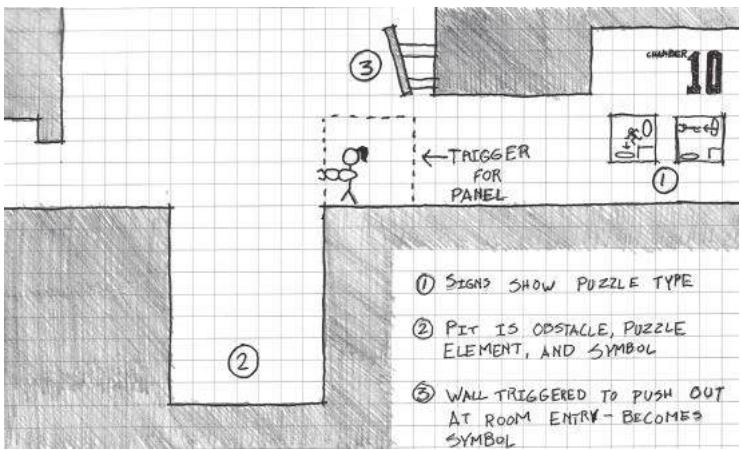 ③
CHAMBER
10
← TRIGGER
FOR
PANEL
①
②
① SIGNS SHOW PUZZLE TYPE
② PIT IS OBSTACLE, PUZZLE
ELEMENT, AND SYMBOL
③ WALL TRIGGERED TO PUSH OUT
AT ROOM ENTRY - BECOMES
SYMBOL